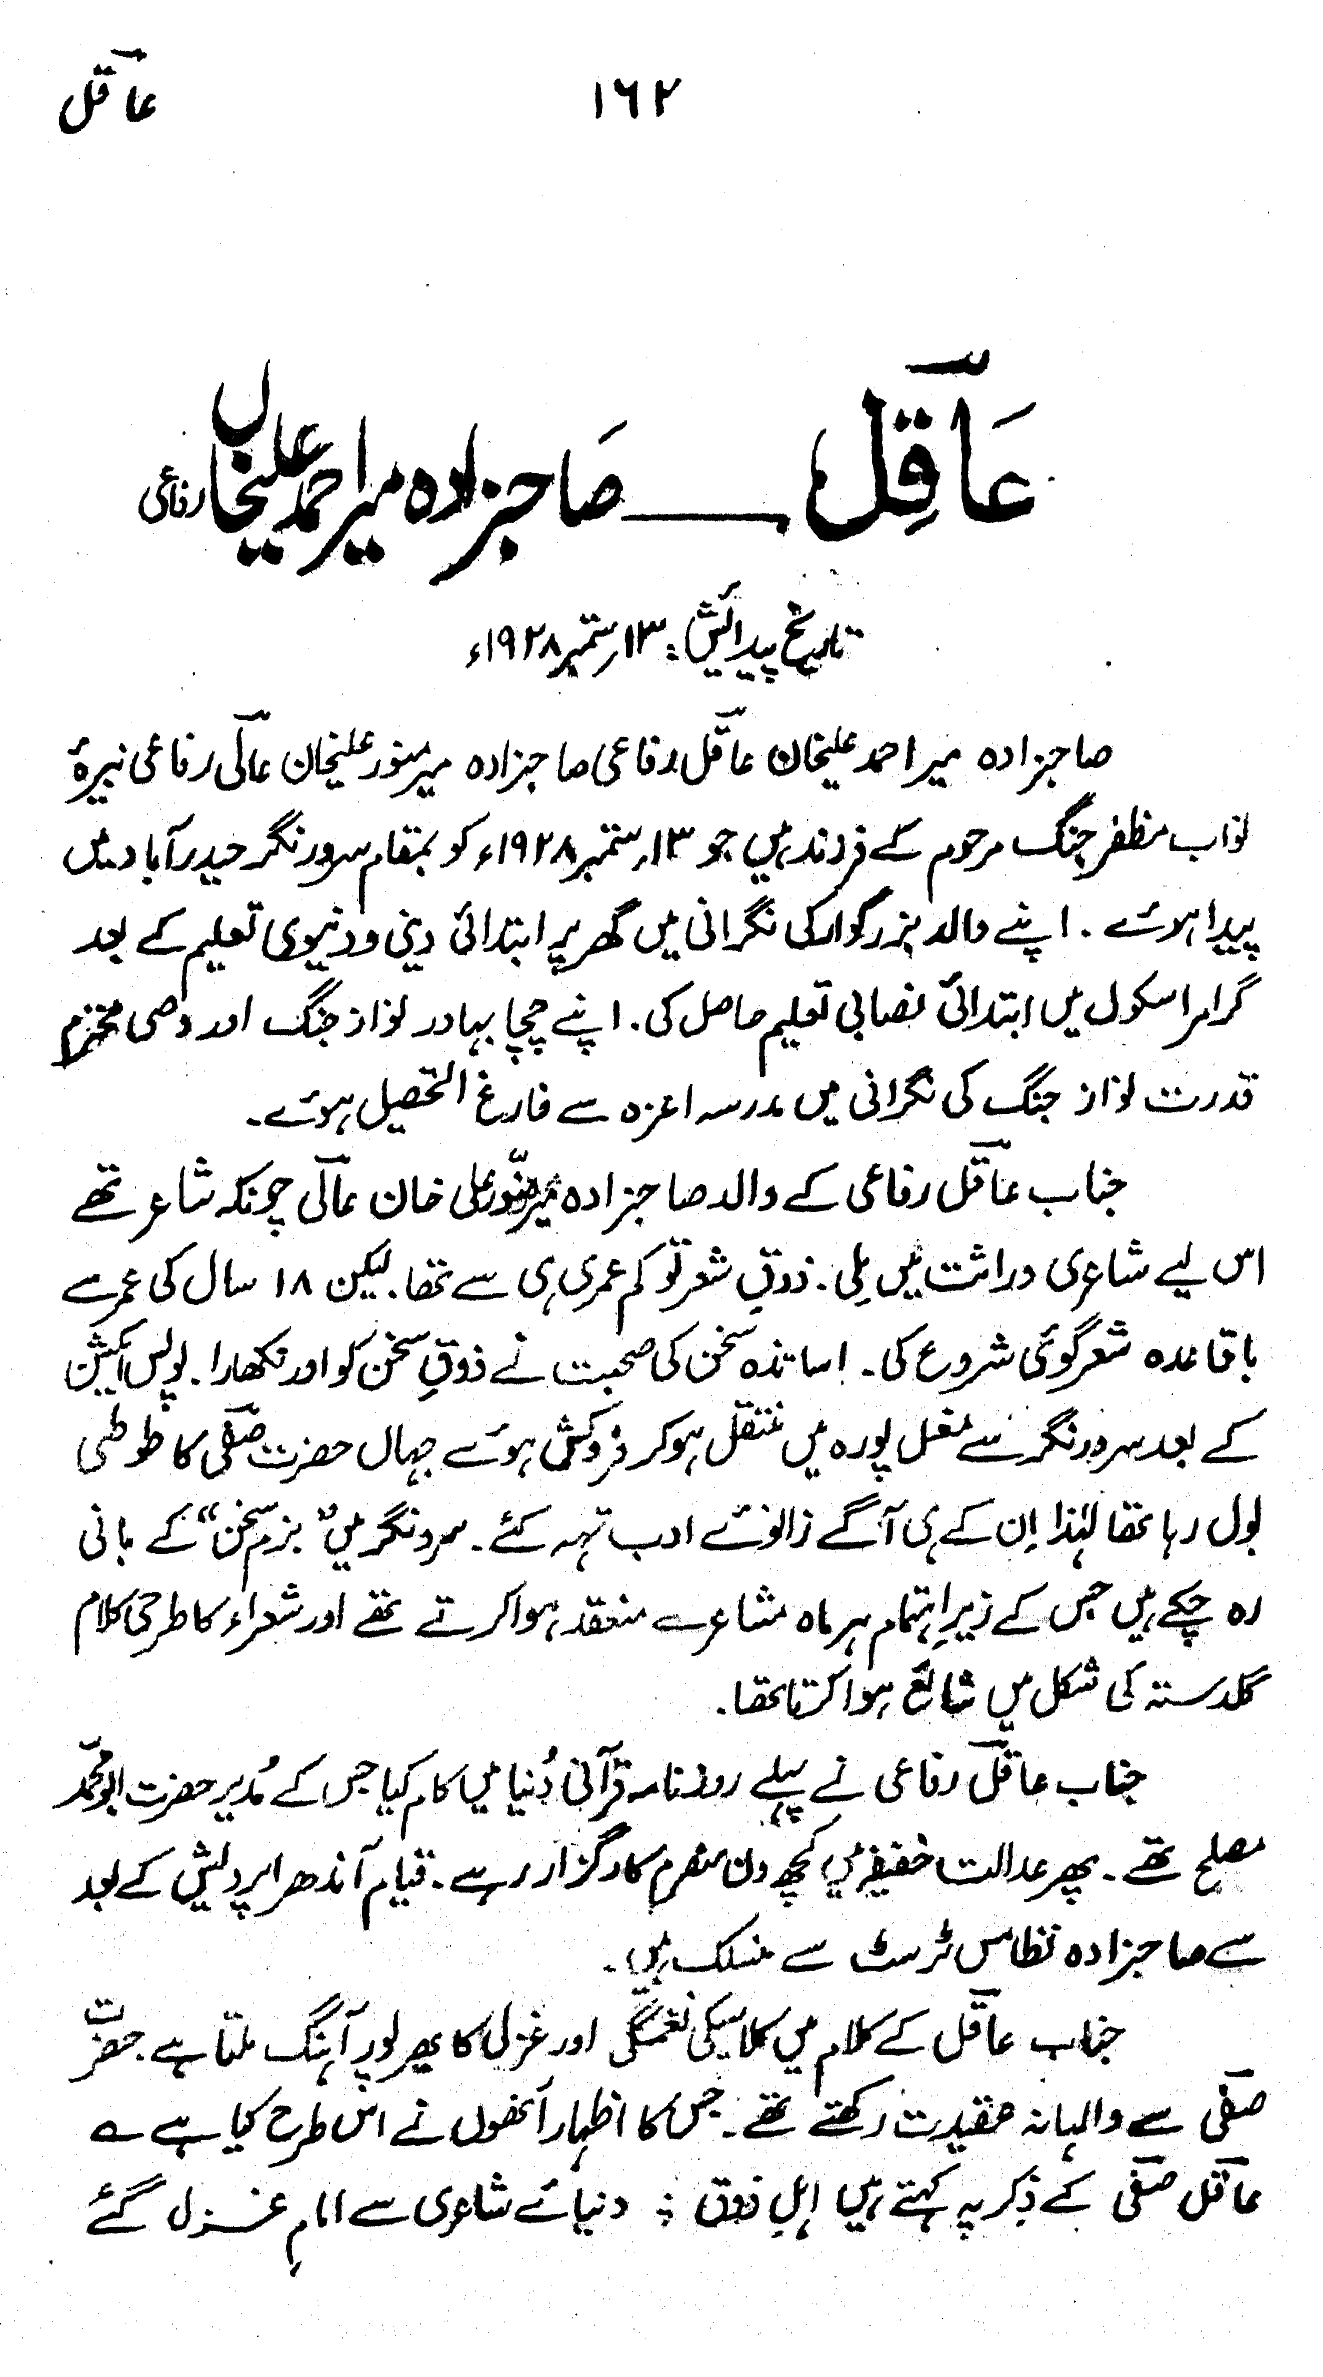 ۱۶۲ عاقلؔ
عاقلؔ ـــــ صاحبزادہ میر احمد علیخاں رفاعی
تاریخ پیدائش: ۱۳؍ستمبر ۱۹۲۸ء
صاحبزادہ میر احمد علیخان عاقلؔ رفاعی صاحبزادہ میر منور علیخان عالیؔ رفاعی نبیرۂ
نواب مظفر جنگ مرحوم کے فرزند ہیں جو ۱۳؍ستمبر ۱۹۲۸ء کو بمقام سرور نگر حیدرآباد میں
پیدا ہوئے ۔ اپنے والد بزرگوار کی نگرانی میں گھر پر ابتدائی دینی و دنیوی تعلیم کے بعد
گرامر اسکول میں ابتدائی نصابی تعلیم حاصل کی۔ اپنے چچا بہادر نواز جنگ اور وصی محترم
قدرت نواز جنگ کی نگرانی میں مدرسہ اعزہ سے فارغ التحصیل ہوئے۔
جناب عاقلؔ رفاعی کے والد صاحبزادہ میر منّور علی خان عالیؔ چونکہ شاعر تھے
اس لیے شاعری وراثت میں مِلی ۔ ذوقِ شعر تو کم عمری ہی سے تھا۔ لیکن ۱۸ سال کی عمر سے
باقاعدہ شعر گوئی شروع کی۔ اساتذہ سخن کی صحبت نے ذوقِ سخن کو اور نکھارا۔ پولیس ایکشن
کے بعد سرور نگر سے مغل پورہ میں منتقل ہوکر فروکش ہوئے جہاں حضرت صفیؔ کا طوطی
بول رہا تھا لہٰذا اِن کے ہی آگے زانوئے ادب تہہ کئے ۔ سرور نگر میں "بزم سخن" کے بانی
رہ چکے ہیں جس کے زیرِ اہتمام ہر ماہ مشاعرے منعقد ہوا کرتے تھے اور شعراء کا طرحی کلام
گلدستہ کی شکل میں شائع ہوا کرتا تھا۔
جناب عاقلؔ رفاعی نے پہلے روزنامہ قرآنی دُنیا میں کام کیا جس کے مُدیر حضرت ابو محمّد
مصلح تھے ۔ پھر عدالت خفیفہ میں کچھ دن منصرم کارگزار رہے ۔ قیام آندھرا پردیش کے بعد
سے صاحبزادہ نظامس ٹرسٹ سے منسلک ہیں ۔
جناب عاقلؔ کے کلام میں کلاسیکی نغمگی اور غزل کا بھرپور آہنگ ملتا ہے حضرت
صفیؔ سے والہانہ عقیدت رکھتے تھے ۔ جس کا اظہار اُنھوں نے اس طرح کیا ہے ؎
عاقلؔ صفیؔ کے ذِکر پہ کہتے ہیں اہلِ ذوق ؛ دنیائے شاعری سے امامِ غزل گئے